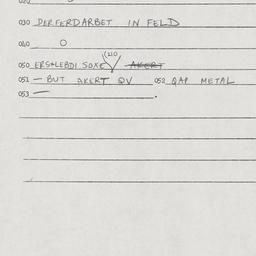 030 DERFERDARBET IN FELD
040 O
050 ERS+LEBDI SOXE (210 AKERT
051 — BUT AKERT QV 052 QAP METAL
053 —